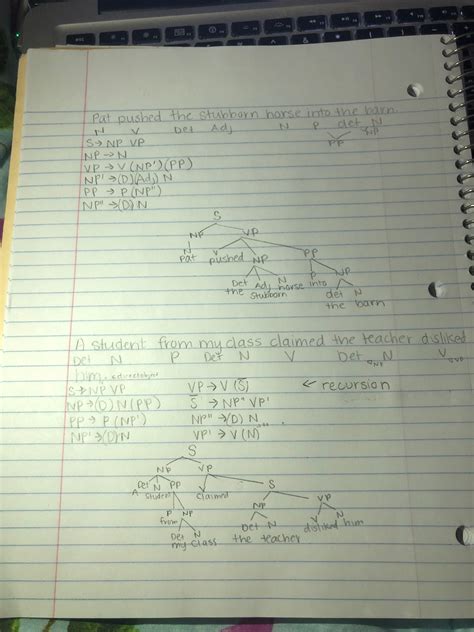 Pat pushed the stubborn horse into the barn.
N V Det Adj N P det N
S → NP VP PP
NP → N
VP → V (NP') (PP)
NP' → (D) (Adj) N
PP → P (NP'')
NP'' → (D) N
S
NP VP
N V NP PP
Pat pushed Det Adj N P NP
the stubborn horse into det N
the barn
A student from my class claimed the teacher disliked
Det N P Det N V Det N V
him.
S → NP VP VP → V (S̄) ← recursion
NP → (D) N (PP) S̄ → NP'' VP'
PP → P (NP') NP'' → (D) N
NP' → (D) N VP' → V (N)
S
NP VP
Det N PP V S
A student claimed
P NP NP VP
from Det N Det N V N
my class the teacher disliked him